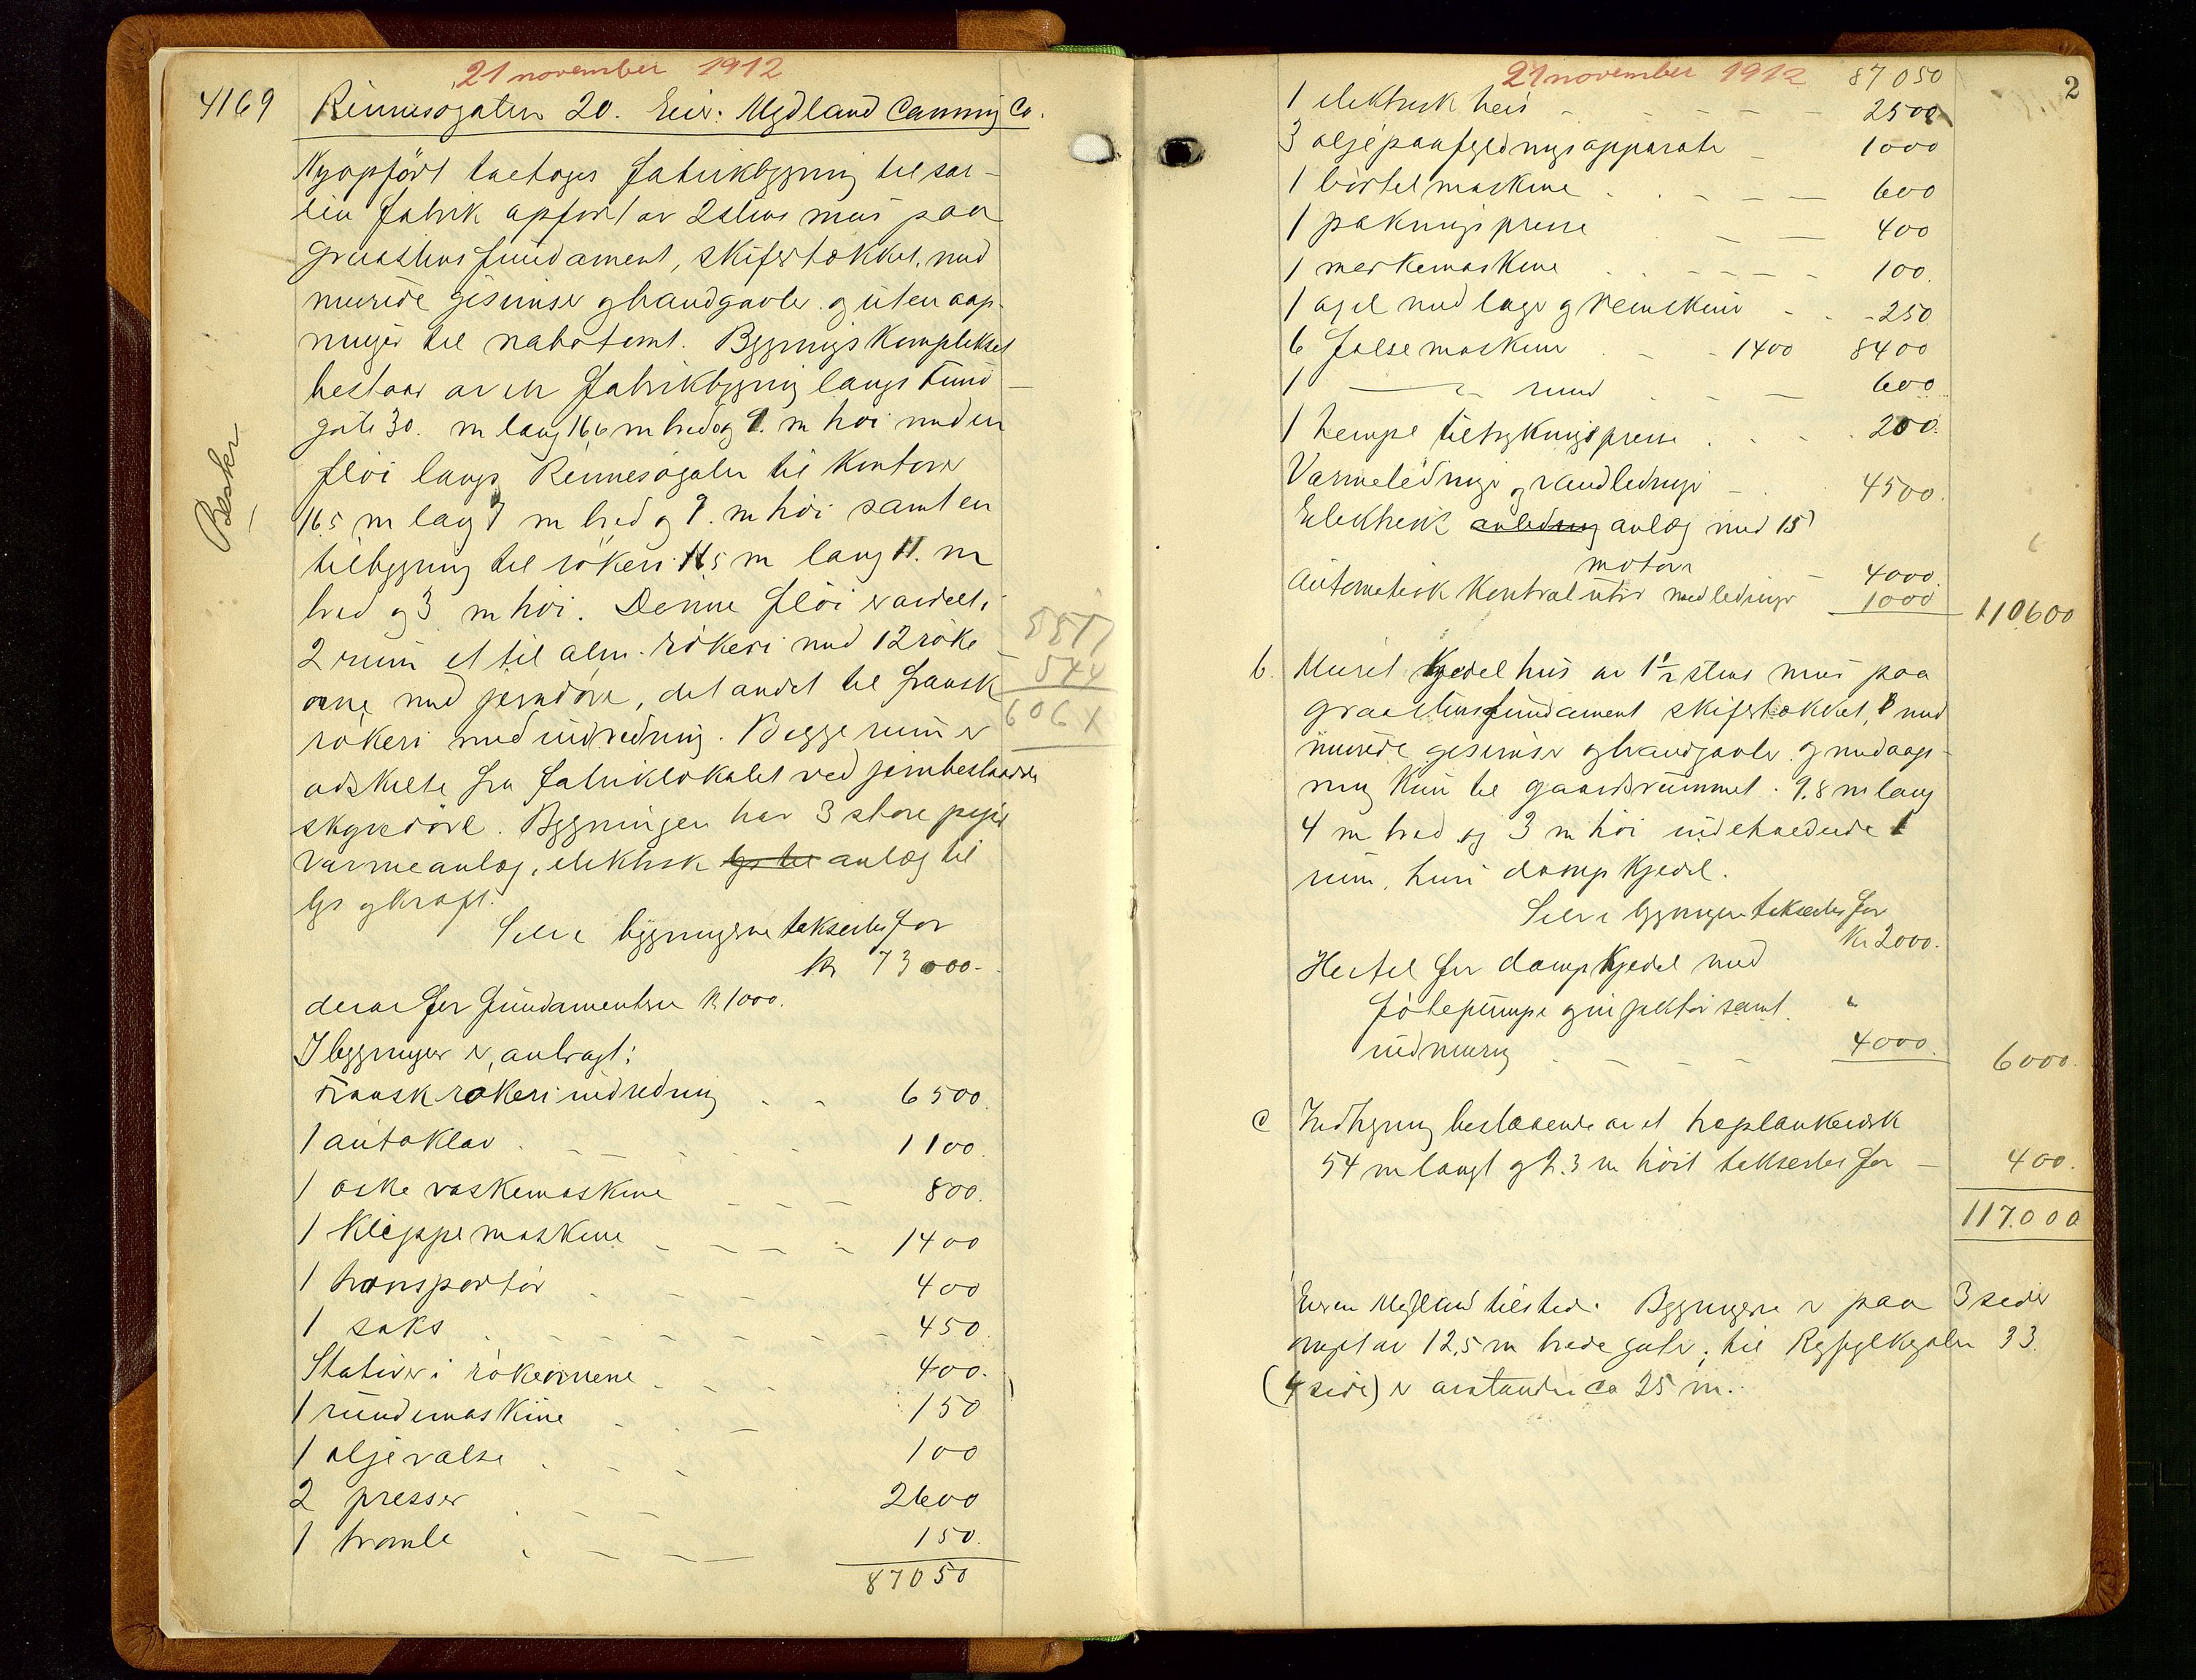 21 november 1912
4169 Rennesøgaten 20. Eier: Mydland Canning Co.
Nyopført 1 etages fabrikbygning til sar-
din fabrik opført av 2 stens mur paa
graastens fundament, skifertækket, med
murede gesimser og brandgavler og uten aap-
ninger til nabotomt. Bygningskomplekset
bestaar av en fabrikbygning langs Tun
gate 30. m lang 16,6 m bred og 9. m høi med en
fløi langs Rennesøgaten til kontorer
16.5 m lang 7 m bred og 9. m høi samt en
tilbygning til røkeri 16,5 m lang 11. m
bred og 3 m høi. Denne fløi er avdelt i
2 rum et til alm. røkeri med 12 røke
ovne med jerndøre, det andet til fransk
røkeri med indredning. Begge rum er
adskilte fra fabriklokalet ved jernbeslaade
skyvedøre. Bygningen har 3 store piper
varmeanlæg, elektrisk lys til anlæg til
lys og kraft.
Beskr
5517
544
6061
Selve bygningerne takseres for
kr 73000.-
derav for fundamenterne kr 1000.
I bygningen er anbragt:
Fransk røkeri indredning . . 6500.
1 autoklav . 1100.
1 æske vaskemaskine 800.
1 Klippemaskine 1400
1 transportør 400
1 saks 450.
Stativer i røkeovnene 400.
1 rundemaskine 150
1 oljevalse 100
2 presser 2600
1 tromle 150.
87050
2
21 november 1912 87050
1 elektrisk heis 2500
3 oljepaafyldningsapparate 1000
1 børtelmaskine 600
1 pakningspresse 400
1 merkemaskine 100.
1 axel med lager og remskiver 250
6 falsemaskiner 1400 8400
1 —"— rund 600
1 hempel tiltrykningspresse 200.
Varmeledninger og vandledninger 4500.
Elektrisk anledning anlæg med 15
motorer 4000.
Automatisk Kontrolur med ledninger 1000 110600
b. Muret Kjedelhus av 1 1/2 stens mur paa
graastensfundament skifertækket, med
murede gesimser og brandgavler og med aap-
ning kun til gaardsrummet. 9.8 m lang
4 m bred og 3 m høi indeholdende 1
rum, huri dampkjedel.
Selve bygningen takseres for
kr 2000.
Hertil for dampkjedel med
fødepumpe og injektør samt
indmuring 4000. 6000.
c Indhegning bestaaende av et træplankeverk
54 m langt og 2.3 m høit takseres for 400.
117.000
Eieren Mydland tilstede. Bygningerne er paa 3 sider
omgit av 12,5 m brede gater; til Ryfylkegaten 33.
(4 side) er avstanden ca 25 m.